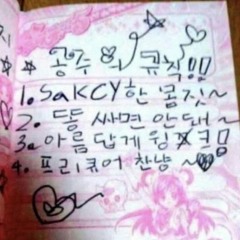 ☆ 공주의 규칙!!
1. SaKCY한 몸짓~
2. 똥 싸면 안돼~
3. 아름답게 윙크!
4. 프리큐어 찬냥~♡